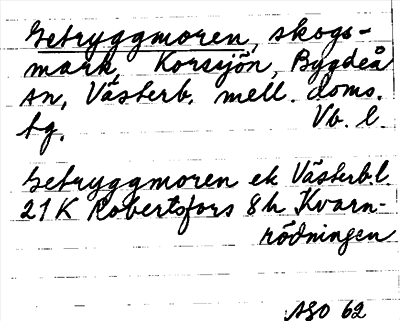 Getryggmoren, skogs-
mark, Korssjön, Bygdeå
sn, Västerb. mell. doms.
tg. Vb. l.
Getryggmoren ek Västerb.l.
21 K Robertsfors 8 h Kvarn-
rödningen
ASO 62